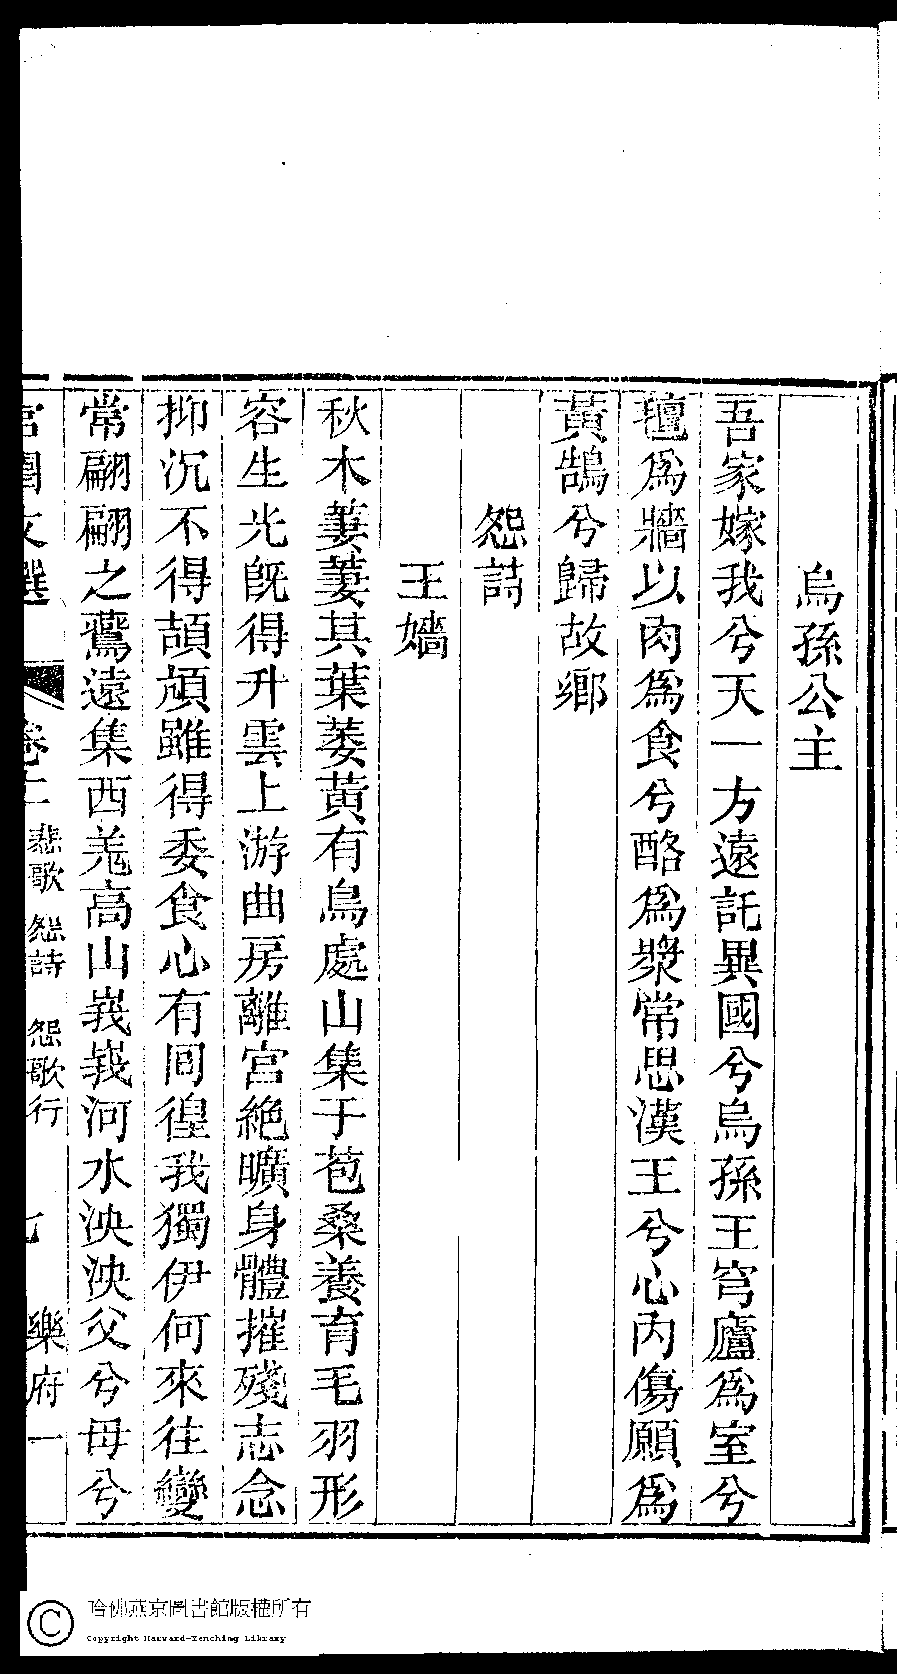 烏孫公主
吾家嫁我兮天一方遠託異國兮烏孫王穹廬爲室兮
氊爲牆以肉爲食兮酪爲漿常思漢王兮心內傷願爲
黃鵠兮歸故鄉
怨詩
王嬙
秋木萋萋其葉萎黃有鳥處山集于苞桑養育毛羽形
容生光旣得升雲上游曲房離宮絕曠身體摧殘志念
抑沉不得頡頏雖得委食心有徊徨我獨伊何來往變
常翩翩之鷰遠集西羌高山峩峩河水泱泱父兮母兮
宮閨文選 卷十 悲歌 怨詩 怨歌行 七 樂府一
哈佛燕京圖書館版權所有
Copyright Harvard-Yenching Library